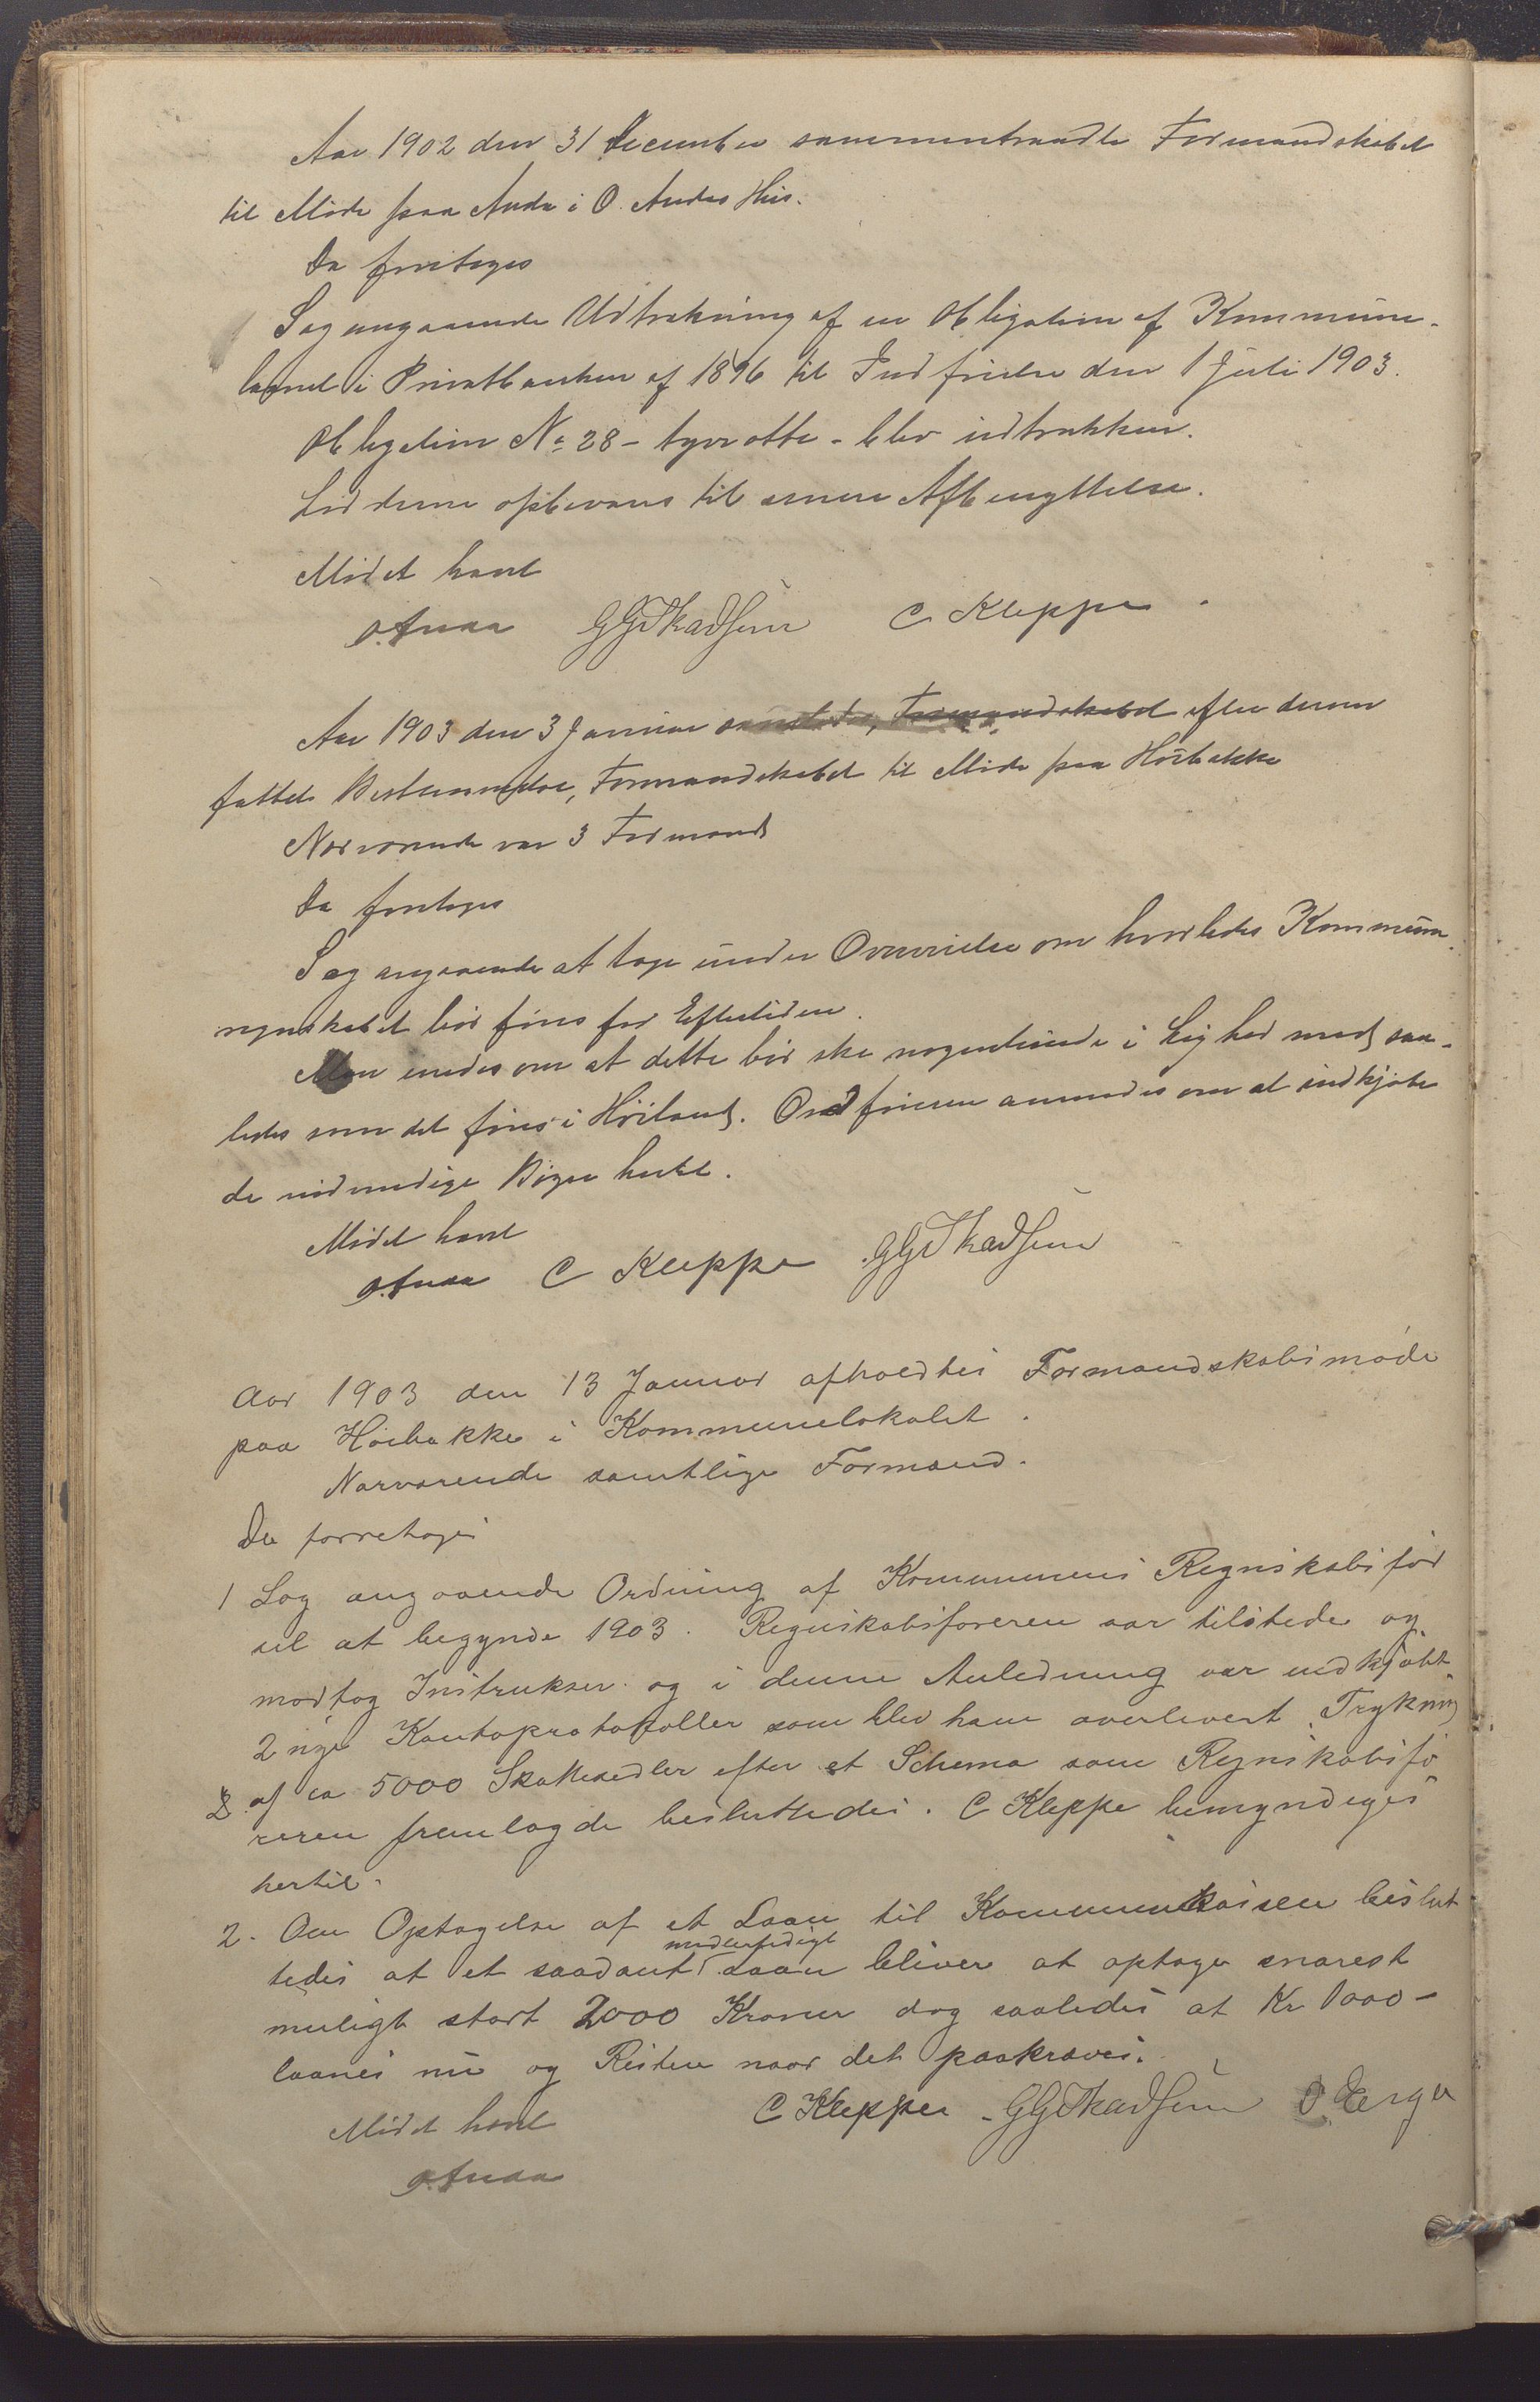 Aar 1902 den 31 December sammentraadte Formandskabet
til Møde paa Anda i O. Andas Hus.
Da foretoges
Sag angaaende Udtrækning af en Obligation af Kommune-
laanet i Privatbanken af 1896 til Indfrielse den 1 Juli 1903.
Obligation No 28 – tyveotte – blev udtrukken.
Lodderne opbevares til senere Afbenyttelse.
Mødet hævet
O. Anda GGSkadsem C Kleppe.
Aar 1903 den 3 Januar samledes, Formandskabet efter derom
fattet Bestemmelse, Formandskabet til Møde paa Höibakke
Nærværende var 3 Formænd
Da foretoges
Sag angaaende at tage under Overveielse om hvorledes Kommune-
regnskabet bör föres for Eftertiden.
Man enedes om at dette bör ske nogenlunde i Lighed med saa-
ledes som det föres i Höiland. Ordföreren anmodes om at indkjöbe
de nödvendige Böger hertil.
Mödet hævet
O. Anda C Kleppe GGSkadsem
Aar 1903 den 13 Januar afholdtes Formandskabsmøde
paa Høibakke i Kommunelokalet.
Nærværende samtlige Formænd.
Da forretoges
1 Sag angaaende Ordning af Kommunens Regnskabsför
sel at begynde 1903. Regnskabsføreren var tilstede og
modtog Instrukser og i denne Anledning var indkjøbt
2 nye Kontoprotokoller som blev ham overlevert. Trykning
2 af ca 5000 Skattesedler efter et Schema som Regnskabsfö
reren fremlagde besluttedes. C Kleppe bemyndiges
hertil.
2. Om Optagelse af et Laan til Kommunekassen beslut
midlertidigt
tedes at et saadant Laan bliver at optage snarest
muligt stort 2000 Kroner dog saaledes at Kr 1000 –
laanes nu og Resten naar det paakræves.
Mødet hævet C Kleppe GGSkadsem O. Erga
O. Anda